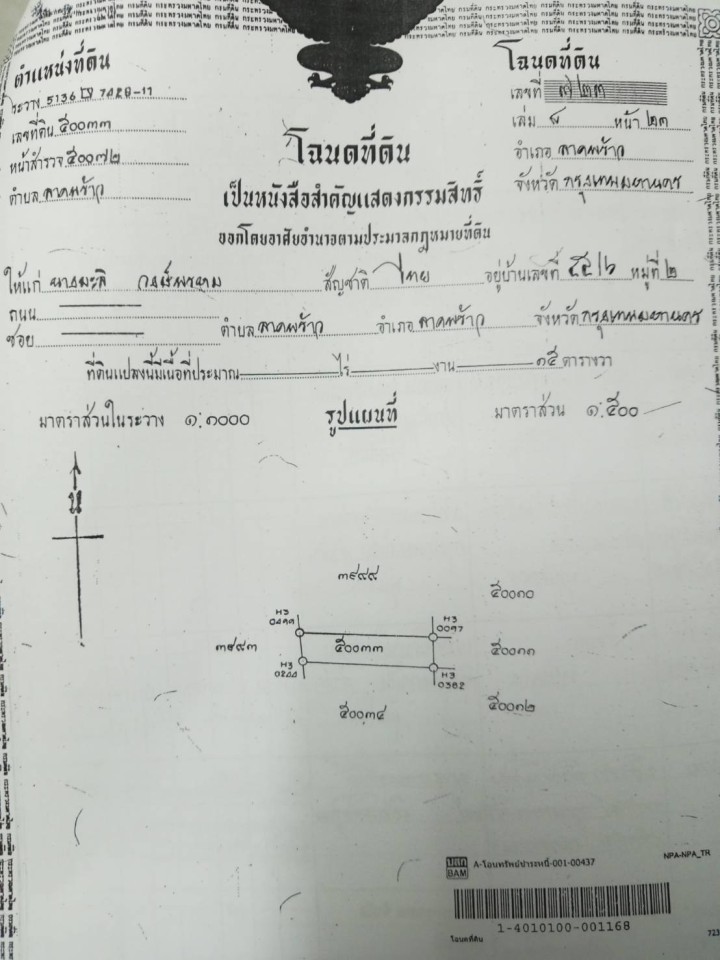 ตำแหน่งที่ดิน
ระวาง 5136 7428-11
เลขที่ดิน ๕๐๐๓๓
หน้าสำรวจ ๕๐๐๗๒
ตำบล ลาดพร้าว
โฉนดที่ดิน
เลขที่ ๗๒๓
เล่ม ๘ หน้า ๒๓
อำเภอ ลาดพร้าว
จังหวัด กรุงเทพมหานคร
โฉนดที่ดิน
เป็นหนังสือสำคัญแสดงกรรมสิทธิ์
ออกโดยอาศัยอำนาจตามประมวลกฎหมายที่ดิน
ให้แก่ นางมะลิ สัญชาติ ไทย อยู่บ้านเลขที่ หมู่ที่ ๒
ถนน
ซอย ตำบล ลาดพร้าว อำเภอ ลาดพร้าว จังหวัด กรุงเทพมหานคร
ที่ดินแปลงนี้มีเนื้อที่ประมาณ ไร่ งาน ๑๕ ตารางวา
มาตราส่วนในระวาง ๑:๑๐๐๐ รูปแผนที่ มาตราส่วน ๑:๕๐๐
น
๓๙๙๙
๕๐๐๑๐
H3 H3
0097
๓๙๙๓ ๕๐๐๓๓ ๕๐๐๑๑
H3 H3
0382
๕๐๐๓๔ ๕๐๐๑๒
บสก BAM A-โอนทรัพย์ชำระหนี้-001-00437 NPA-NPA_TR
1-4010100-001168
โฉนดที่ดิน 723